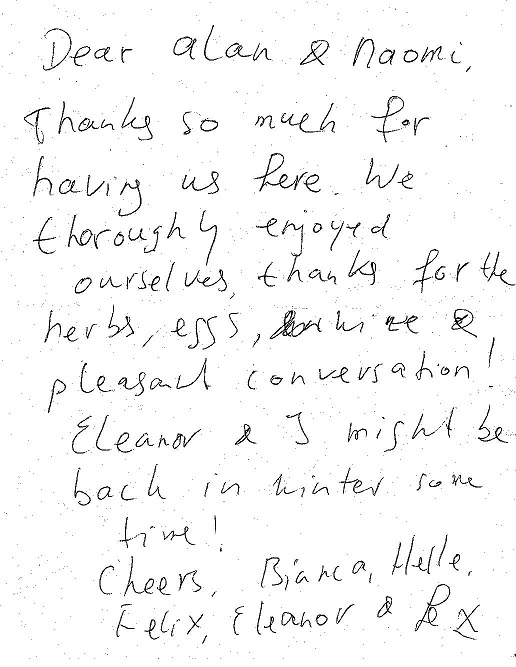 Dear Alan & Naomi,
Thanks so much for
having us here. We
thoroughly enjoyed
ourselves, thanks for the
herbs, eggs, wine &
pleasant conversation!
Eleanor & I might be
back in winter some
time!
Cheers, Bianca, Helle,
Felix, Eleanor &